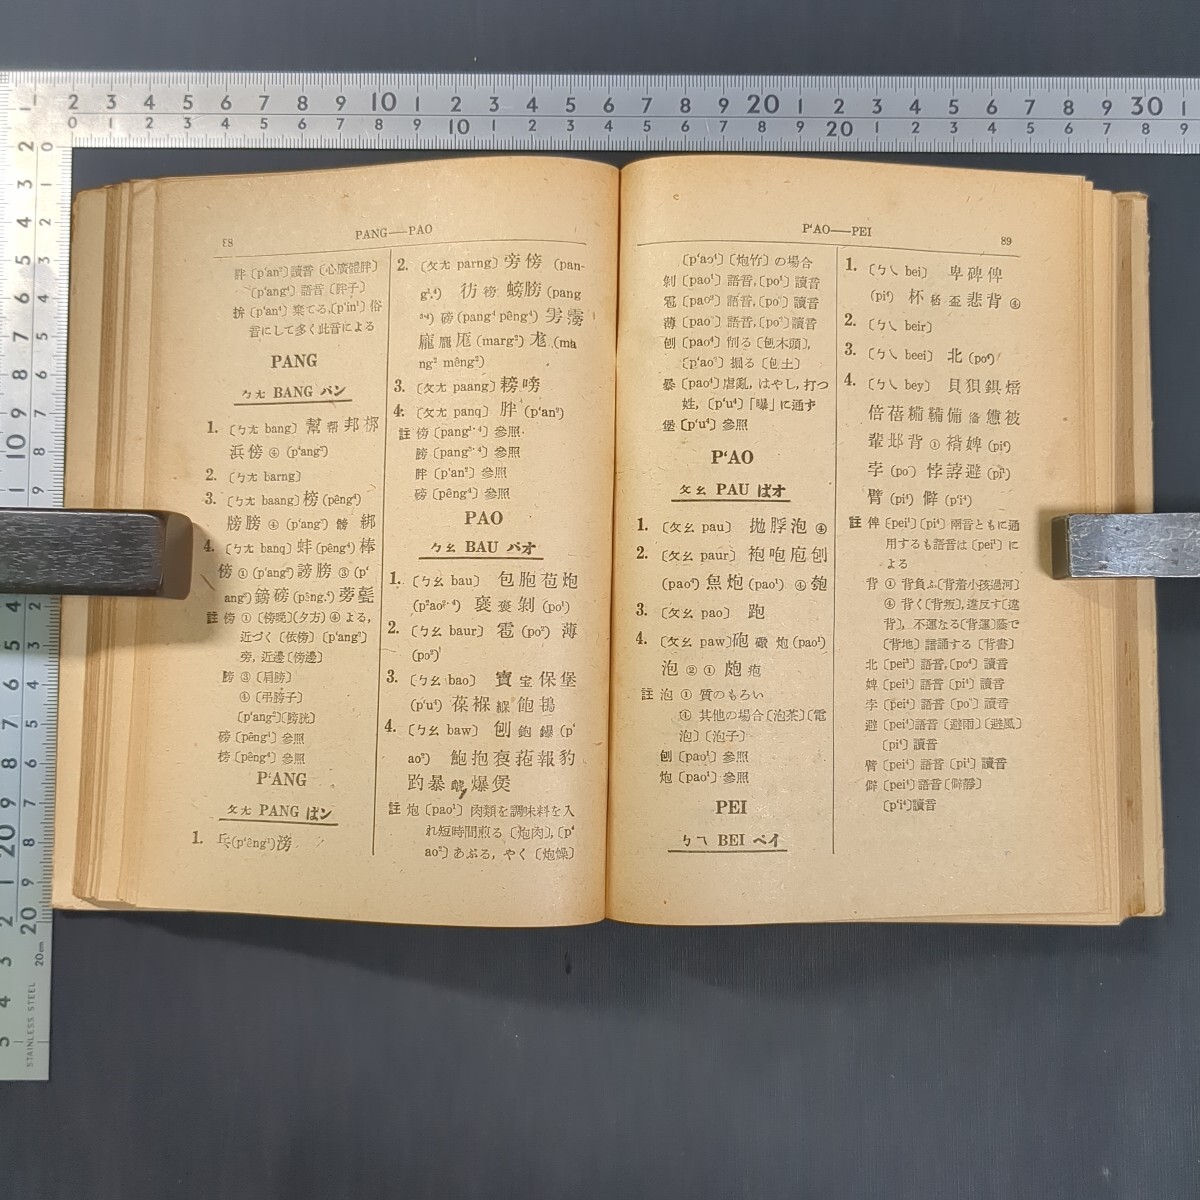 88
PANG——PAO
胖〔p'an²〕讀音〔心廣體胖〕
〔p'ang⁴〕語音〔胖子〕
拚〔p'an⁴〕棄てる,〔p'in¹〕俗
音にして多く此音による
PANG
ㄅㄤ BANG バン
1.〔ㄅㄤ bang〕幫 帮 邦 梆
浜 傍 ④ (p'ang²)
2.〔ㄅㄤ barng〕
3.〔ㄅㄤ baang〕榜 (pêng⁴)
牓 膀 ④ (p'ang²) 綁
4.〔ㄅㄤ banq〕蚌 (pêng⁴) 棒
傍 ① (p'ang²) 謗 膀 ③ (p'
ang²) 鎊 磅 (pêng⁴) 蒡
註 傍 ①〔傍晚〕(夕方) ④ よる,
近づく〔依傍〕〔p'ang²〕
旁, 近邊〔傍邊〕
膀 ③〔肩膀〕
④〔弔膀子〕
〔p'ang²〕〔膀胱〕
磅〔pêng⁴〕參照
榜〔pêng⁴〕參照
P'ANG
ㄆㄤ PANG ぱン
1. 乓 (p'êng¹) 滂
2.〔ㄆㄤ parng〕旁 傍 (pan-
g¹·⁴) 彷 螃 膀 (pang
³·⁴) 磅 (pang⁴ pêng⁴) 雱 霶
龐 厖 (marg²) 尨 (ma
ng² mêng²)
3.〔ㄆㄤ paang〕耪 嗙
4.〔ㄆㄤ panq〕胖 (p'an²)
註 傍〔pang¹·⁴〕參照
膀〔pang³·⁴〕參照
胖〔p'an²〕參照
磅〔pêng⁴〕參照
PAO
ㄅㄠ BAU バオ
1.〔ㄅㄠ bau〕包 胞 苞 炮
(p'ao²·⁴) 襃 褒 剝 (po¹)
2.〔ㄅㄠ baur〕雹 (po²) 薄
(po²)
3.〔ㄅㄠ bao〕寶 宝 保 堡
(p'u⁴) 葆 褓 緥 飽 鴇
4.〔ㄅㄠ baw〕刨 鉋 鑤 (p'
ao²) 鮑 抱 菢 報 豹
趵 暴 爆 煲
註 炮〔pao¹〕肉類を調味料を入
れ短時間煎る〔炮肉〕,〔p'
ao²〕あぶる, やく〔炮燥〕
P'AO——PEI
89
〔p'ao⁴〕〔炮竹〕の場合
剝〔pao¹〕語音,〔po¹〕讀音
雹〔pao²〕語音,〔po²〕讀音
薄〔pao²〕語音,〔po²〕讀音
刨〔pao⁴〕削る〔刨木頭〕,
〔p'ao²〕掘る〔刨土〕
暴〔pao⁴〕虐亂, はやし, 打つ
姓,〔p'u⁴〕「曝」に通ず
堡〔p'u⁴〕參照
P'AO
ㄆㄠ PAU ぱオ
1.〔ㄆㄠ pau〕拋 脬 泡 ④
2.〔ㄆㄠ paur〕袍 咆 庖 刨
(pao⁴) 炰 炮 (pao¹) ④ 匏
3.〔ㄆㄠ pao〕跑
4.〔ㄆㄠ paw〕砲 礮 炮 (pao¹)
泡 ② ① 皰 疱
註 泡 ① 質のもろい
④ 其他の場合〔泡茶〕〔電
泡〕〔泡子〕
刨〔pao⁴〕參照
炮〔pao¹〕參照
PEI
ㄅㄟ BEI ベイ
1.〔ㄅㄟ bei〕卑 碑 俾
(pi⁴) 杯 桮 盃 悲 背 ④
2.〔ㄅㄟ beir〕
3.〔ㄅㄟ beei〕北 (po⁴)
4.〔ㄅㄟ bey〕貝 狽 鋇 焙
倍 蓓 備 憊 被
輩 邶 背 ① 褙 婢 (pi⁴)
孛 (po²) 悖 誖 避 (pi⁴)
臂 (pi⁴) 僻 (p'i⁴)
註 俾〔pei¹〕〔pi⁴〕兩音ともに通
用するも語音は〔pei¹〕に
よる
背 ① 背負ふ〔背着小孩過河〕
④ 背く〔背叛〕, 違反す〔違
背〕, 不運なる〔背運〕蔭で
〔背地〕諳誦する〔背書〕
北〔pei³〕語音,〔po⁴〕讀音
婢〔pei⁴〕語音〔pi⁴〕讀音
孛〔pei⁴〕語音〔po²〕讀音
避〔pei⁴〕語音〔避雨〕〔避風〕
〔pi⁴〕讀音
臂〔pei⁴〕語音〔pi⁴〕讀音
僻〔pei⁴〕語音〔僻靜〕
〔p'i⁴〕讀音
STAINLESS STEEL
20cm